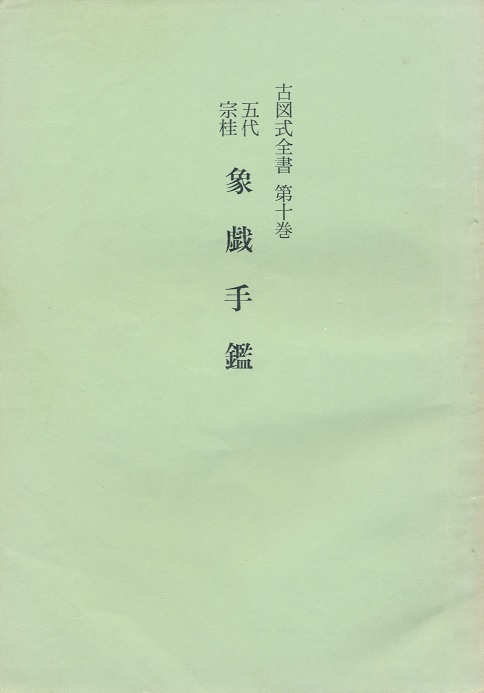 古図式全書 第十巻
五代
宗桂
象戯手鑑